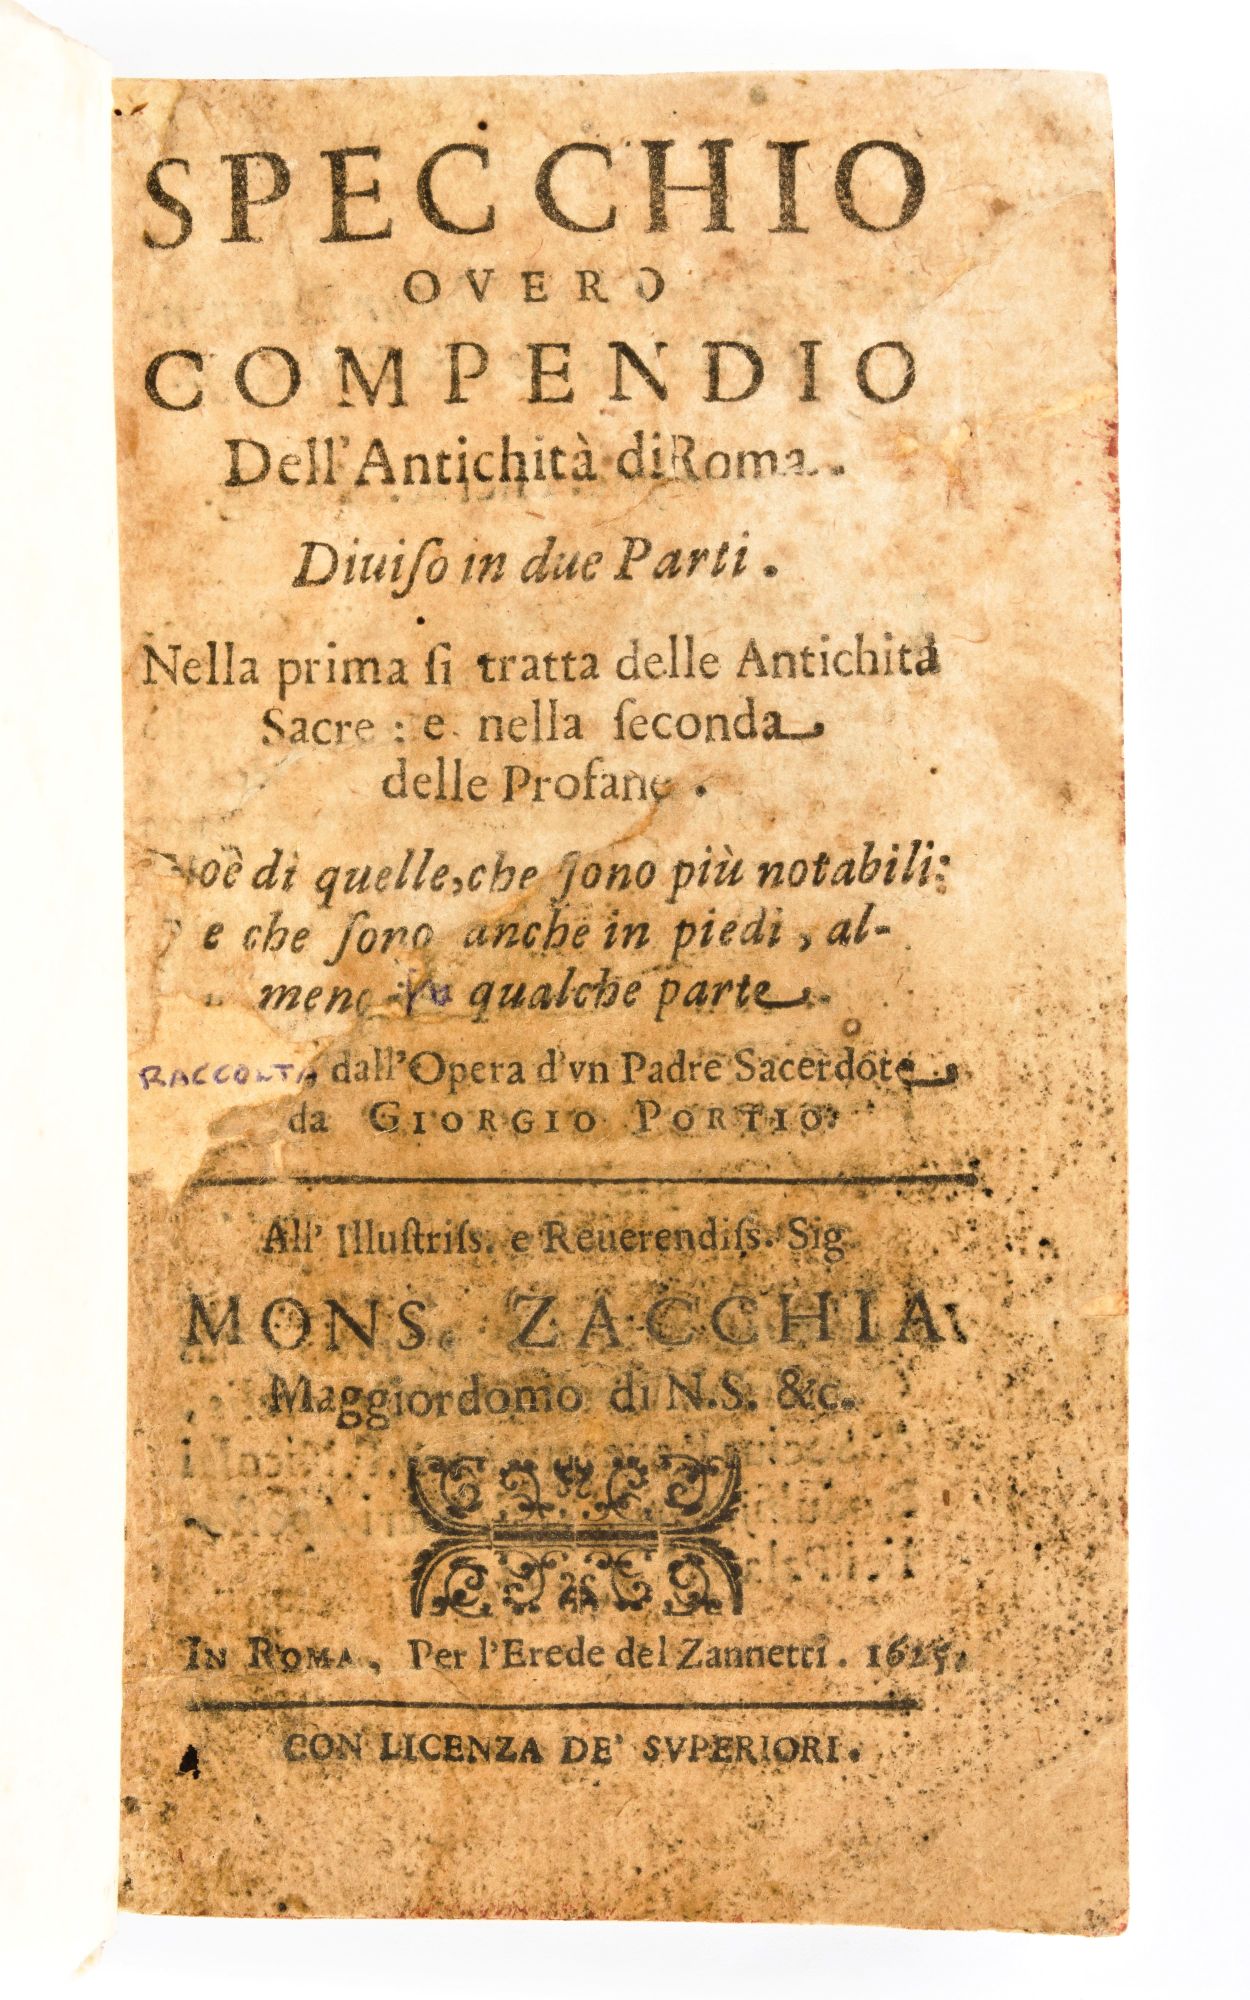 SPECCHIO
OVERO
COMPENDIO
Dell'Antichità di Roma.
Diuiſo in due Parti.
Nella prima ſi tratta delle Antichità
Sacre: e nella ſeconda
delle Profane.
oè di quelle, che ſono più notabili:
e che ſono anche in piedi, al-
meno qualche parte.
RACCOLTA, dall'Opera d'vn Padre Sacerdote
da GIORGIO PORTIO.
All' Illuſtriſs. e Reuerendiſs. Sig
MONS. ZACCHIA
Maggiordomo di N.S. &c.
IN ROMA, Per l'Erede del Zannetti. 1625.
CON LICENZA DE' SVPERIORI.